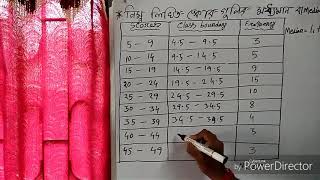 * নিম্ন লিখিত স্কোর গুলির মধ্যমান বা Median
Scores Class boundary Frequency
Median =
5 - 9 4.5 - 9.5 3
10 - 14 9.5 - 14.5 5
15 - 19 14.5 - 19.5 9
20 - 24 19.5 - 24.5 15
25 - 29 24.5 - 29.5 10
30 - 34 29.5 - 34.5 8
35 - 39 34.5 - 39.5 4
40 - 44 5
45 - 49 3
PowerDirector